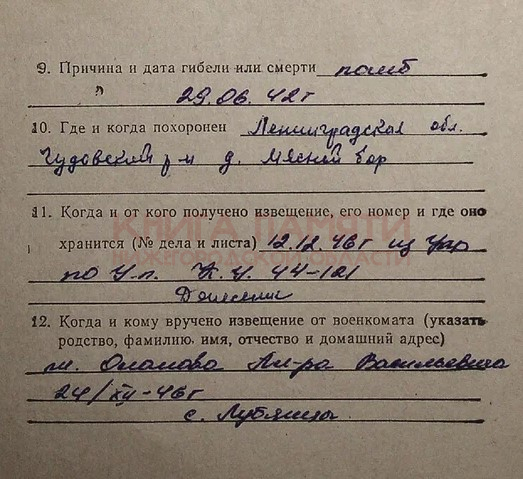 9. Причина и дата гибели или смерти погиб
29.06.42г
10. Где и когда похоронен Ленинградская обл.
Чудовский р-н д. Мясной бор
11. Когда и от кого получено извещение, его номер и где оно
КНИГА ПАМЯТИ
хранится (№ дела и листа) 12.12.46г из Упр
НИЖЕГОРОДСКОЙ ОБЛАСТИ
по У.п. 44-121
Донесени
12. Когда и кому вручено извещение от военкомата (указать
родство, фамилию, имя, отчество и домашний адрес)
Ал-ра Васильевна
24/XII-46г
с. Лубянцы